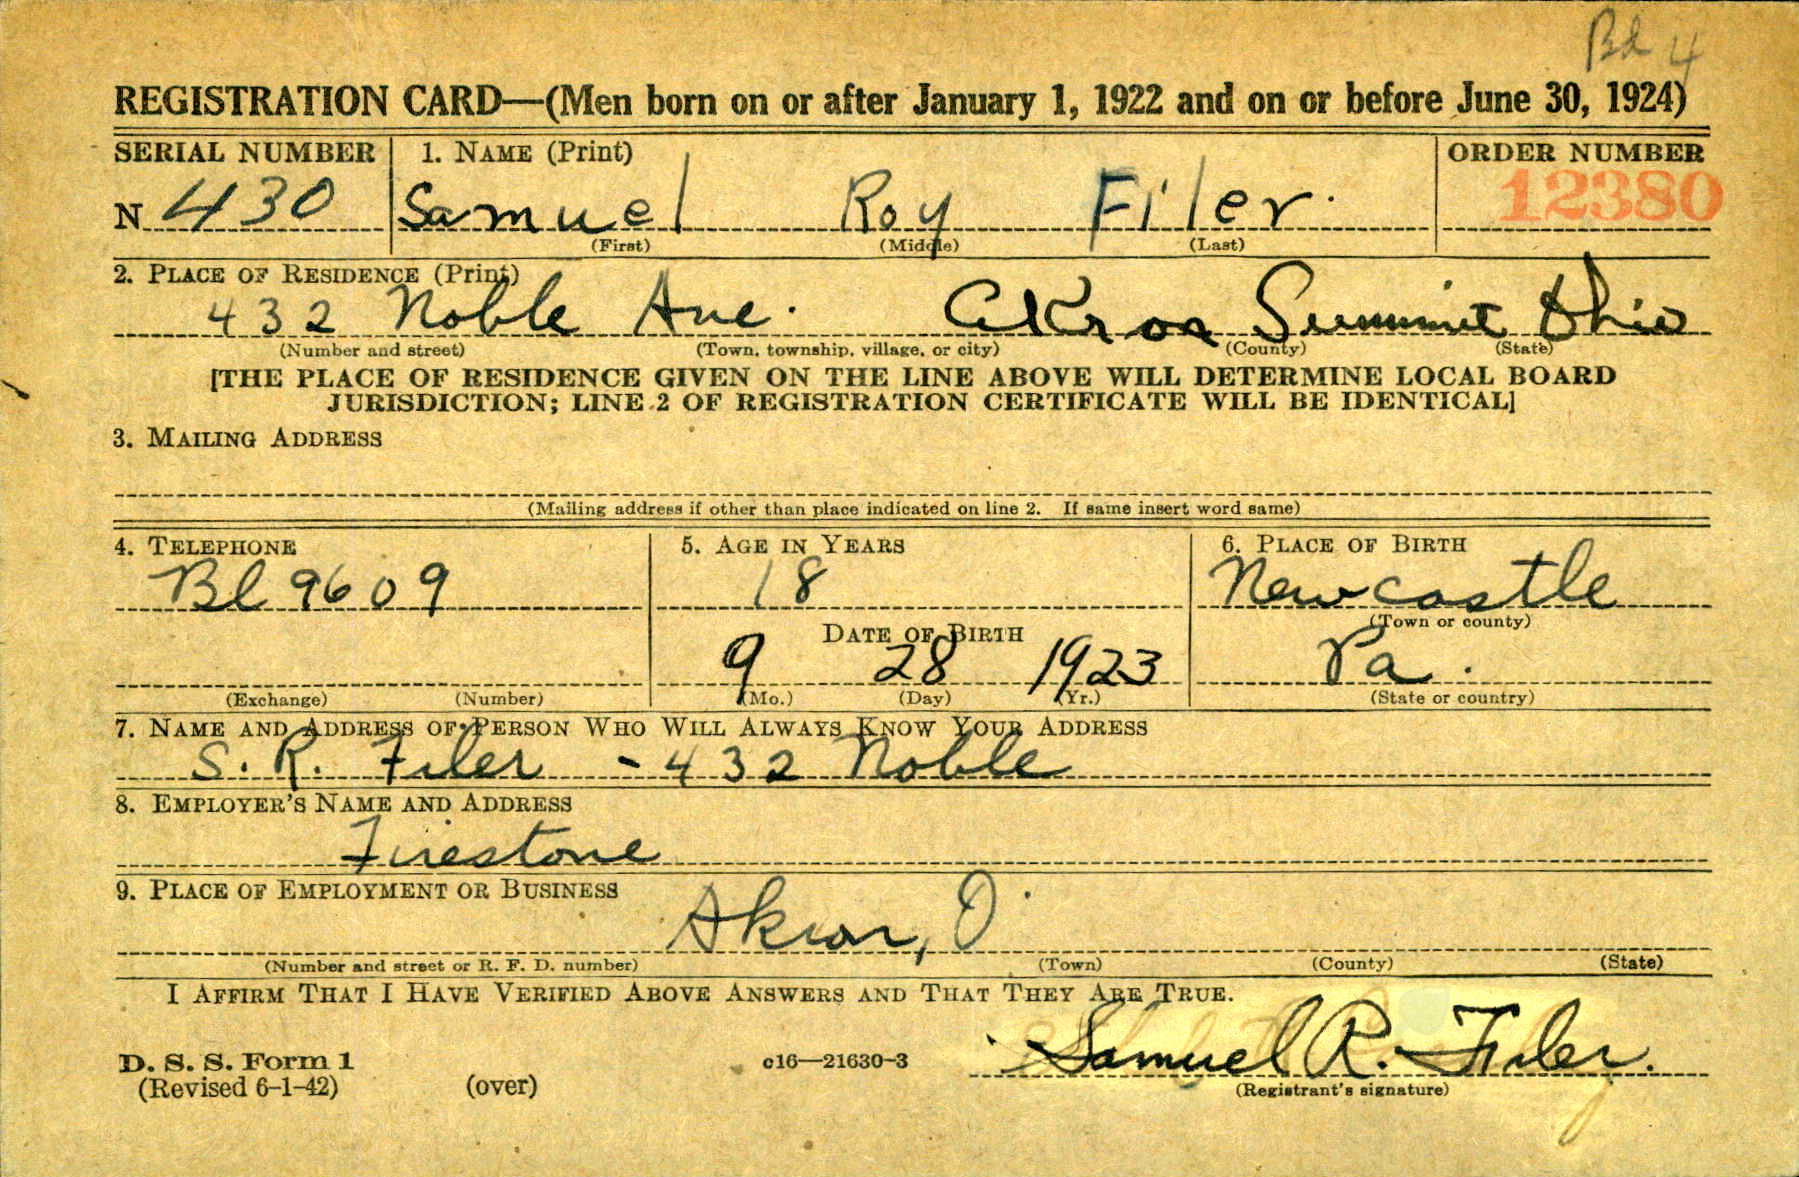 Bd 4
REGISTRATION CARD—(Men born on or after January 1, 1922 and on or before June 30, 1924)
SERIAL NUMBER 1. NAME (Print) ORDER NUMBER
N 430 Samuel Roy Filer. 12380
(First) (Middle) (Last)
2. PLACE OF RESIDENCE (Print)
432 Noble Ave. Akron Summit Ohio
(Number and street) (Town, township, village, or city) (County) (State)
[THE PLACE OF RESIDENCE GIVEN ON THE LINE ABOVE WILL DETERMINE LOCAL BOARD
JURISDICTION; LINE 2 OF REGISTRATION CERTIFICATE WILL BE IDENTICAL]
3. MAILING ADDRESS
(Mailing address if other than place indicated on line 2. If same insert word same)
4. TELEPHONE 5. AGE IN YEARS 6. PLACE OF BIRTH
Bl 9609 18 Newcastle
(Town or county)
DATE OF BIRTH
9 28 1923 Pa.
(Exchange) (Number) (Mo.) (Day) (Yr.) (State or country)
7. NAME AND ADDRESS OF PERSON WHO WILL ALWAYS KNOW YOUR ADDRESS
S. R. Filer - 432 Noble
8. EMPLOYER'S NAME AND ADDRESS
Firestone
9. PLACE OF EMPLOYMENT OR BUSINESS
Akron, O.
(Number and street or R. F. D. number) (Town) (County) (State)
I AFFIRM THAT I HAVE VERIFIED ABOVE ANSWERS AND THAT THEY ARE TRUE.
Samuel R. Filer.
D. S. S. Form 1 c16—21630-3
(Revised 6-1-42) (over) (Registrant's signature)